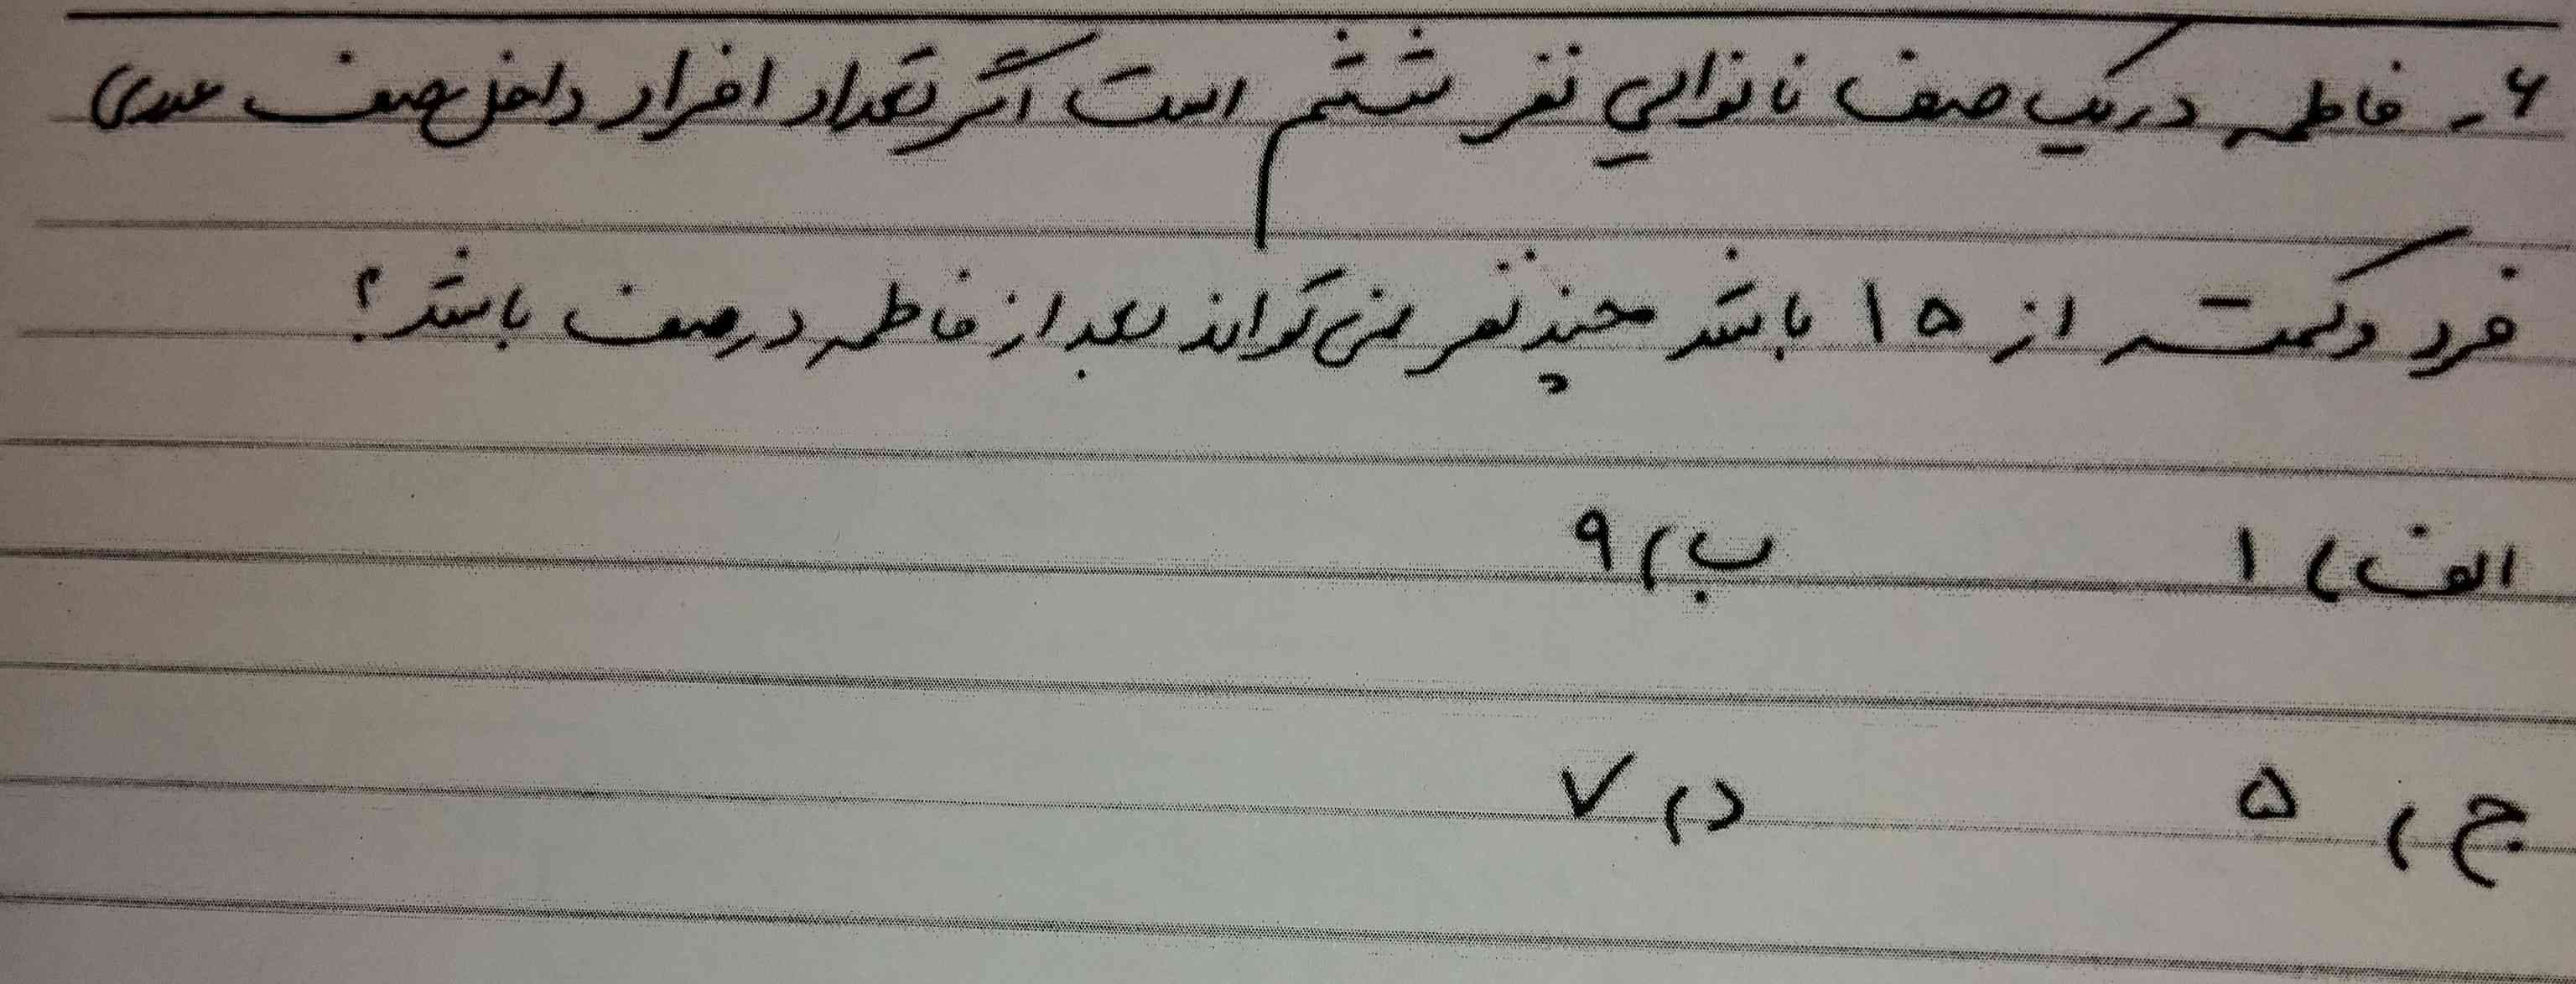 ۶- فاطمه در یک صف نانوایی نفر ششم است اگر تعداد افراد داخل صف عددی
فرد و کمتر از ۱۵ باشد چند نفر نمی تواند بعد از فاطمه در صف باشد؟
الف) ۱ ب) ۹
ج) ۵ د) ۷